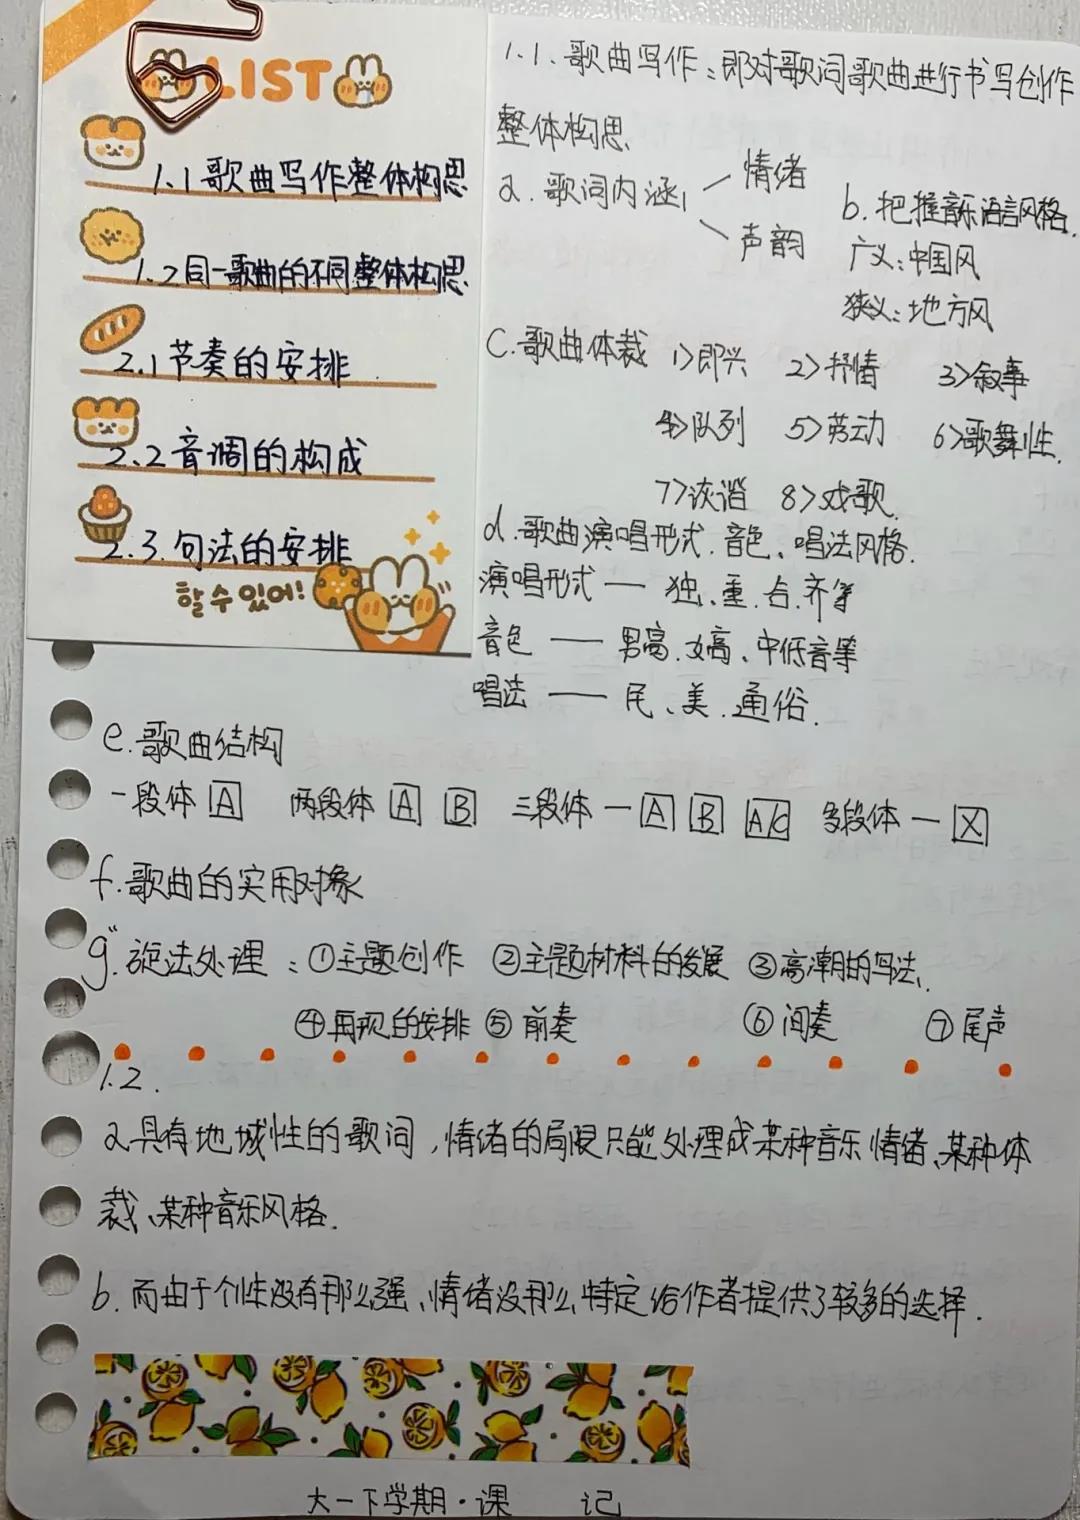 LIST
1.1歌曲写作整体构思
1.2同一歌曲的不同整体构思
2.1节奏的安排
2.2音调的构成
2.3.句法的安排
할 수 있어!
1.1.歌曲写作:即对歌词歌曲进行书写创作
整体构思
a.歌词内涵
情绪
声韵
b.把握音乐语言风格.
广义:中国风
狭义:地方风
C.歌曲体裁 1>即兴 2>抒情 3>叙事
4>队列 5>劳动 6>歌舞性.
7>诙谐 8>戏歌.
d.歌曲演唱形式.音色、唱法风格.
演唱形式 — 独、重.合.齐等
音色 — 男高.女高、中低音等
唱法 — 民、美.通俗.
e.歌曲结构
一段体 A 两段体 A B 三段体 — A B A/C 多段体 — X
f.歌曲的实用对象
g.旋法处理:①主题创作 ②主题材料的发展 ③高潮的写法.
④再现的安排 ⑤前奏 ⑥间奏 ⑦尾声
1.2.
a.具有地域性的歌词,情绪的局限只能处理成某种音乐情绪、某种体
裁、某种音乐风格.
b.而由于个性没有那么强、情绪没那么特定给作者提供了较多的选择.
大一下学期·课 记